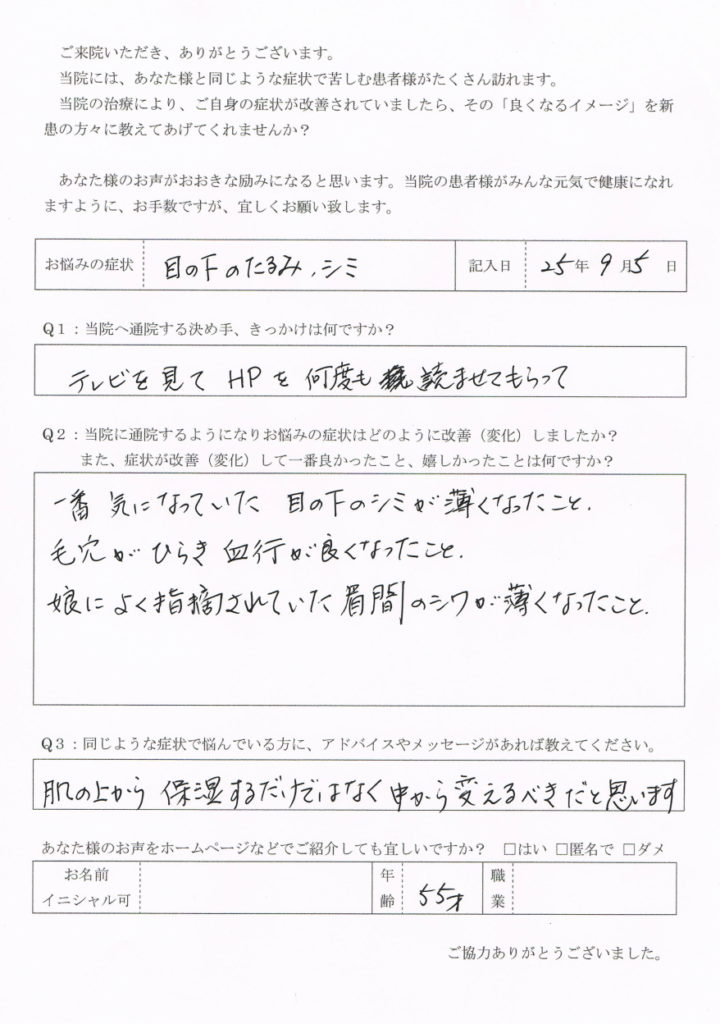 ご来院いただき、ありがとうございます。
当院には、あなた様と同じような症状で苦しむ患者様がたくさん訪れます。
当院の治療により、ご自身の症状が改善されていましたら、その「良くなるイメージ」を新
患の方々に教えてあげてくれませんか？
あなた様のお声がおおきな励みになると思います。当院の患者様がみんな元気で健康になれ
ますように、お手数ですが、宜しくお願い致します。
お悩みの症状 目の下のたるみ、シミ 記入日 25年 9月5日
Q1：当院へ通院する決め手、きっかけは何ですか？
テレビを見て HPを何度も 読ませてもらって
Q2：当院に通院するようになりお悩みの症状はどのように改善（変化）しましたか？
また、症状が改善（変化）して一番良かったこと、嬉しかったことは何ですか？
一番 気になっていた 目の下のシミが薄くなったこと.
毛穴がひらき 血行が良くなったこと.
娘によく指摘されていた眉間のシワが薄くなったこと.
Q3：同じような症状で悩んでいる方に、アドバイスやメッセージがあれば教えてください。
肌の上から 保湿するだけではなく 中から変えるべきだと思います
あなた様のお声をホームページなどでご紹介しても宜しいですか？ □はい □匿名で □ダメ
お名前
イニシャル可
年齢 55才 職業
ご協力ありがとうございました。